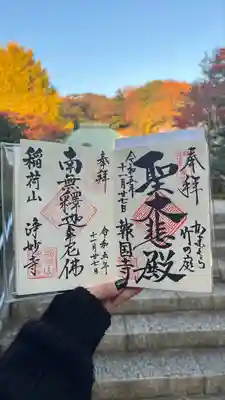 奉拝
聖大悲殿
かまくら
竹の庭
令和五年
十一月廿七日
報国寺
奉拝
南無釋迦牟尼佛
令和五年
十一月廿七日
稲荷山
浄妙寺